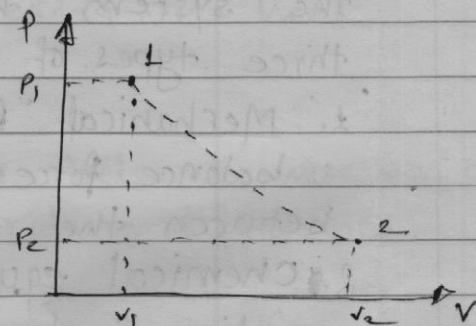 P
1
P1
P2
2
v1
v2
V